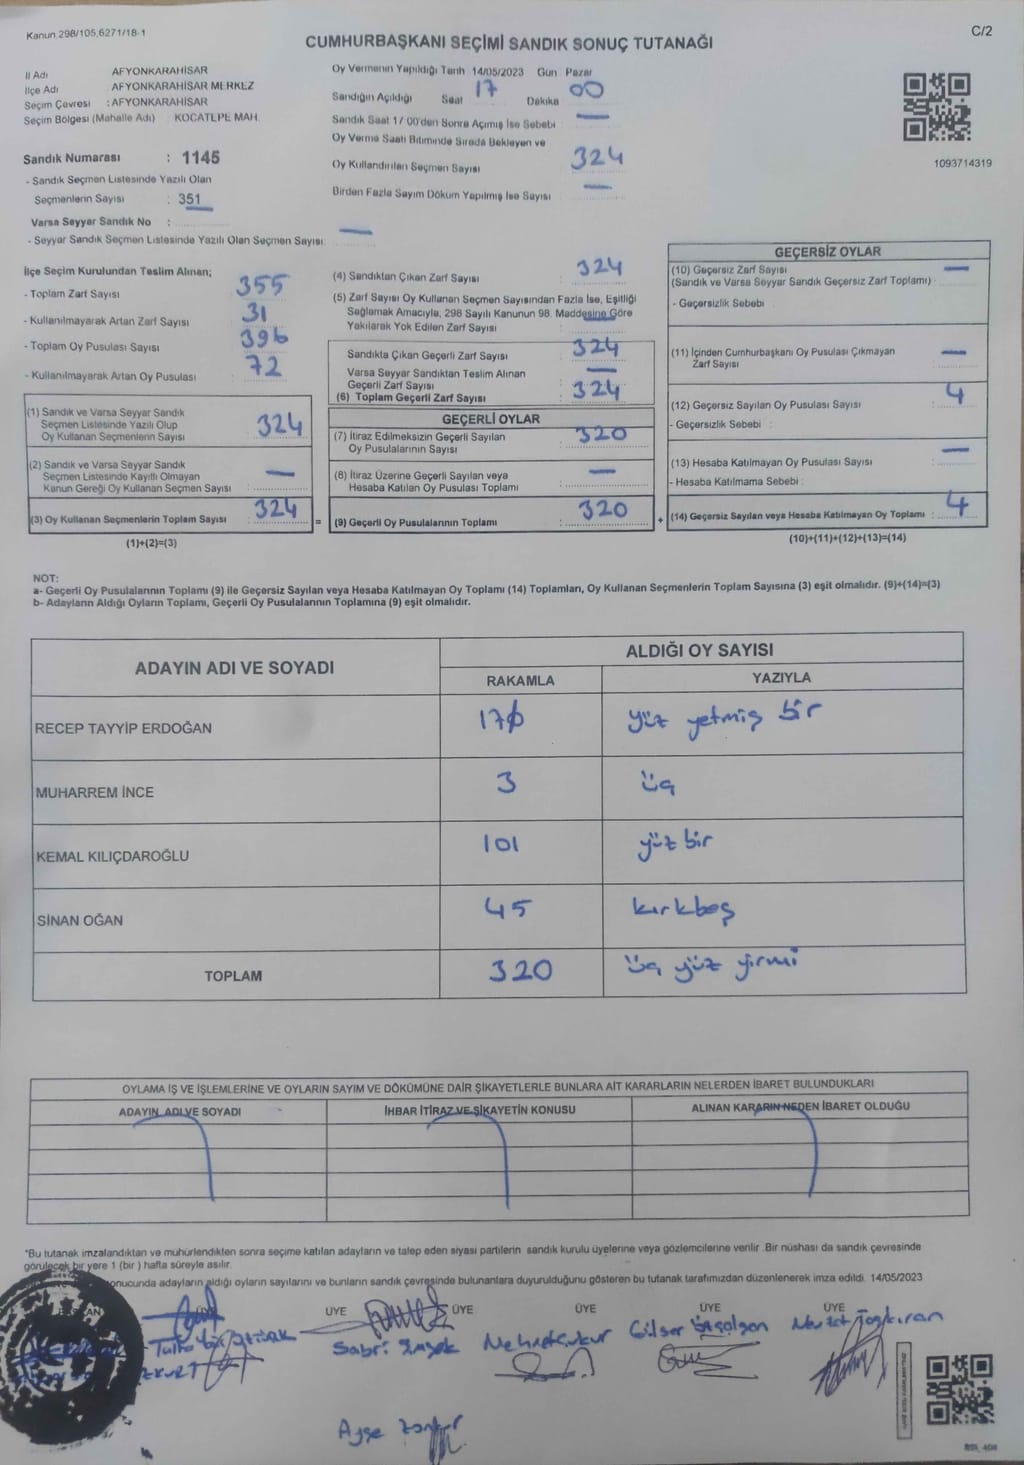 Kanun 298/105,6271/18-1
C/2
CUMHURBAŞKANI SEÇİMİ SANDIK SONUÇ TUTANAĞI
İl Adı AFYONKARAHİSAR
İlçe Adı AFYONKARAHİSAR MERKEZ
Seçim Çevresi : AFYONKARAHİSAR
Seçim Bölgesi (Mahalle Adı) KOCATEPE MAH.
Oy Vermenin Yapıldığı Tarih 14/05/2023 Gün Pazar
Sandığın Açıldığı Saat 17 Dakika 00
Sandık Saat 17 00'den Sonra Açımış İse Sebebi : —
Oy Verme Saati Bitiminde Sırada Bekleyen ve
Oy Kullandırılan Seçmen Sayısı 324
Birden Fazla Sayım Döküm Yapılmış İse Sayısı —
1093714319
Sandık Numarası : 1145
- Sandık Seçmen Listesinde Yazılı Olan
Seçmenlerin Sayısı : 351
Varsa Seyyar Sandık No :
- Seyyar Sandık Seçmen Listesinde Yazılı Olan Seçmen Sayısı: —
İlçe Seçim Kurulundan Teslim Alınan;
- Toplam Zarf Sayısı 355
- Kullanılmayarak Artan Zarf Sayısı 31
- Toplam Oy Pusulası Sayısı 396
- Kullanılmayarak Artan Oy Pusulası : 72
(1) Sandık ve Varsa Seyyar Sandık
Seçmen Listesinde Yazılı Olup
Oy Kullanan Seçmenlerin Sayısı 324
(2) Sandık ve Varsa Seyyar Sandık
Seçmen Listesinde Kayıtlı Olmayan
Kanun Gereği Oy Kullanan Seçmen Sayısı —
(3) Oy Kullanan Seçmenlerin Toplam Sayısı : 324
(1)+(2)=(3)
=
(4) Sandıktan Çıkan Zarf Sayısı : 324
(5) Zarf Sayısı Oy Kullanan Seçmen Sayısından Fazla İse, Eşitliği
Sağlamak Amacıyla, 298 Sayılı Kanunun 98. Maddesine Göre
Yakılarak Yok Edilen Zarf Sayısı
Sandıkta Çıkan Geçerli Zarf Sayısı 324
Varsa Seyyar Sandıktan Teslim Alınan
Geçerli Zarf Sayısı —
(6) Toplam Geçerli Zarf Sayısı 324
GEÇERLİ OYLAR
(7) İtiraz Edilmeksizin Geçerli Sayılan
Oy Pusulalarının Sayısı 320
(8) İtiraz Üzerine Geçerli Sayılan veya
Hesaba Katılan Oy Pusulası Toplamı —
(9) Geçerli Oy Pusulalarının Toplamı : 320
+
GEÇERSİZ OYLAR
(10) Geçersiz Zarf Sayısı
(Sandık ve Varsa Seyyar Sandık Geçersiz Zarf Toplamı) : —
- Geçersizlik Sebebi :
(11) İçinden Cumhurbaşkanı Oy Pusulası Çıkmayan
Zarf Sayısı —
(12) Geçersiz Sayılan Oy Pusulası Sayısı : 4
- Geçersizlik Sebebi :
(13) Hesaba Katılmayan Oy Pusulası Sayısı : —
- Hesaba Katılmama Sebebi :
(14) Geçersiz Sayılan veya Hesaba Katılmayan Oy Toplamı : 4
(10)+(11)+(12)+(13)=(14)
NOT:
a- Geçerli Oy Pusulalarının Toplamı (9) ile Geçersiz Sayılan veya Hesaba Katılmayan Oy Toplamı (14) Toplamları, Oy Kullanan Seçmenlerin Toplam Sayısına (3) eşit olmalıdır. (9)+(14)=(3)
b- Adayların Aldığı Oyların Toplamı, Geçerli Oy Pusulalarının Toplamına (9) eşit olmalıdır.
ADAYIN ADI VE SOYADI
ALDIĞI OY SAYISI
RAKAMLA YAZIYLA
RECEP TAYYİP ERDOĞAN yüz yetmiş bir
MUHARREM İNCE 3 üç
KEMAL KILIÇDAROĞLU 101 yüz bir
SİNAN OĞAN 45 kırkbeş
TOPLAM 320 üç yüz yirmi
OYLAMA İŞ VE İŞLEMLERİNE VE OYLARIN SAYIM VE DÖKÜMÜNE DAİR ŞİKAYETLERLE BUNLARA AİT KARARLARIN NELERDEN İBARET BULUNDUKLARI
ADAYIN ADI VE SOYADI İHBAR İTİRAZ VE ŞİKAYETİN KONUSU ALINAN KARARIN NEDEN İBARET OLDUĞU
*Bu tutanak imzalandıktan ve mühürlendikten sonra seçime katılan adayların ve talep eden siyasi partilerin sandık kurulu üyelerine veya gözlemcilerine verilir .Bir nüshası da sandık çevresinde
görülecek bir yere 1 (bir ) hafta süreyle asılır.
sonucunda adayların aldığı oyların sayılarını ve bunların sandık çevresinde bulunanlara duyurulduğunu gösteren bu tutanak tarafımızdan düzenlenerek imza edildi. 14/05/2023
BAŞKAN ÜYE ÜYE ÜYE ÜYE ÜYE ÜYE
Sabri Mehmet Gülser
Ayşe